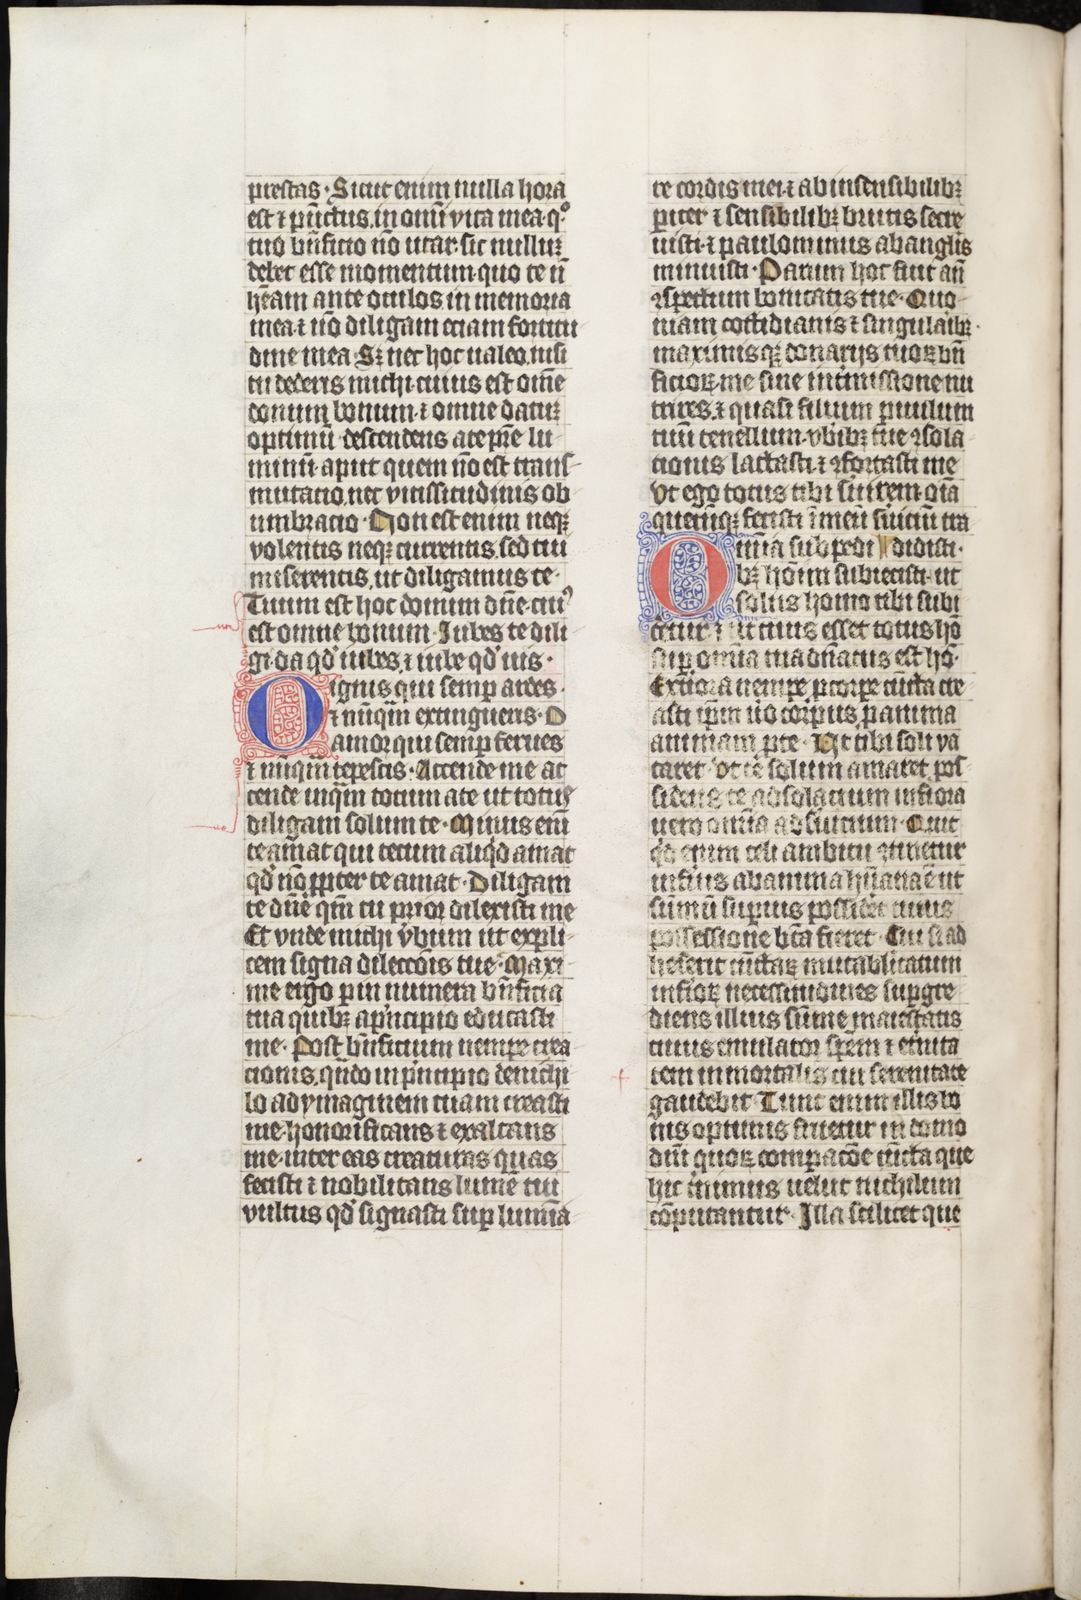 prestas · Sicut enim nulla hora
est ⁊ pūctus in omī vita mea q°
tuo bn̄ficio nō utar· sic nulluꝫ
debet esse momentum quo te n̄
hēam ante oculos in memoria
mea ⁊ nō diligam etiam fortitu
dine mea · Sꝫ nec hoc ualeo nisi
tu dederis michi cuius est om̄e
donum bonum ⁊ omne datuꝫ
optimū descendens a te pr̄e lu
minū aput quem nō est trans
mutatio nec vicissitudinis ob
umbracio · Non est enim neqꝫ
volentis neqꝫ currentis sed tui
miserentis ut diligamus te ·
Tuum est hoc donum dn̄e cuiꝰ
est omne bonum · Iubes te dili
gi da qd̕ iubes ⁊ iube qd̕ uis ·
O ignis qui semp ardes ·
⁊ nūq̄m extingueris · O
amor qui semp ferues
⁊ nūq̄m tepescis · Accende me ac
cende inq̄m totum a te ut totuꝰ
diligam solum te · Minus eni̅
te amat qui tecum aliq̄d amat
qd̕ nō ꝓpter te amat · Diligam
te dn̄e qm̄ tu prior dilexisti me
Et vnde michi v̄bum ut expli
cem signa dileccōis tue · Maxi
me ergo ꝑ in numera bn̄ficia
tua quibꝫ a pͥncipio educasti
me · Post bn̄ficium nempe crea
cionis qn̄do in pͥncipio de nichi
lo ad ymaginem tuam creasti
me honorificans ⁊ exaltans
me inter eas creaturas quas
fecisti ⁊ nobilitans lumīe tui
vultus qd̕ signasti suꝑ lumīa
re cordis mei ⁊ ab insensibilibꝫ
pͥter ⁊ sensibilibꝫ brutis secre
uisti ⁊ paulominus ab angl̄is
minuisti · Parum hoc fuit an̄
ꝯspectum bonitatis tue · Quo
niam cottidianis ⁊ singularibꝫ
maximisqꝫ donarijs tuoꝝ bn̄
ficioꝝ me sine int̄missione nu
trires ⁊ quasi filium ꝑuulum
tuū tenellum vbibꝫ tue ꝯsola
tionis lactasti ⁊ ꝯfortasti me
Vt ego totus tibi seruirem oīa
quecūqꝫ fecisti ī meū suiciū tra
O mīa sub pedi didisti ·
bꝫ hoīm subiecisti ut
solus homo tibi subi
cetur ⁊ ut tuus esset totus hō
suꝑ omīa ma dn̄atus est hō ·
Exteriora nempe ꝓ corpe cūcta cre
asti ipm̄ u̅o corpus ꝑ anima
animam ꝑ te · Ut tibi soli va
caret · Vt te solum amaret pos
sidens te ad solacium infiora
uero omīa ad suicium · Quit
q̄d enim celi ambitu ꝯtinetur
inferius ab anima hūana ē ut
sūmū suꝑius possidet cuius
possessione bt̄a fieret · Cui si ad
heserit cūctaꝝ mutabilitatum
infioꝝ necessitudines suꝑgre
diens illius sūme maiestatis
cuius emulator sp̄em ⁊ et̄nita
tem inmortalis cui serenitate
gaudebit Tunc enim illis bo
nis optimis fruetur in domo
dn̄i quoꝝ compacōe cūcta que
hic cernimus uelut nichilum
cōputantur · Illa scilicet que